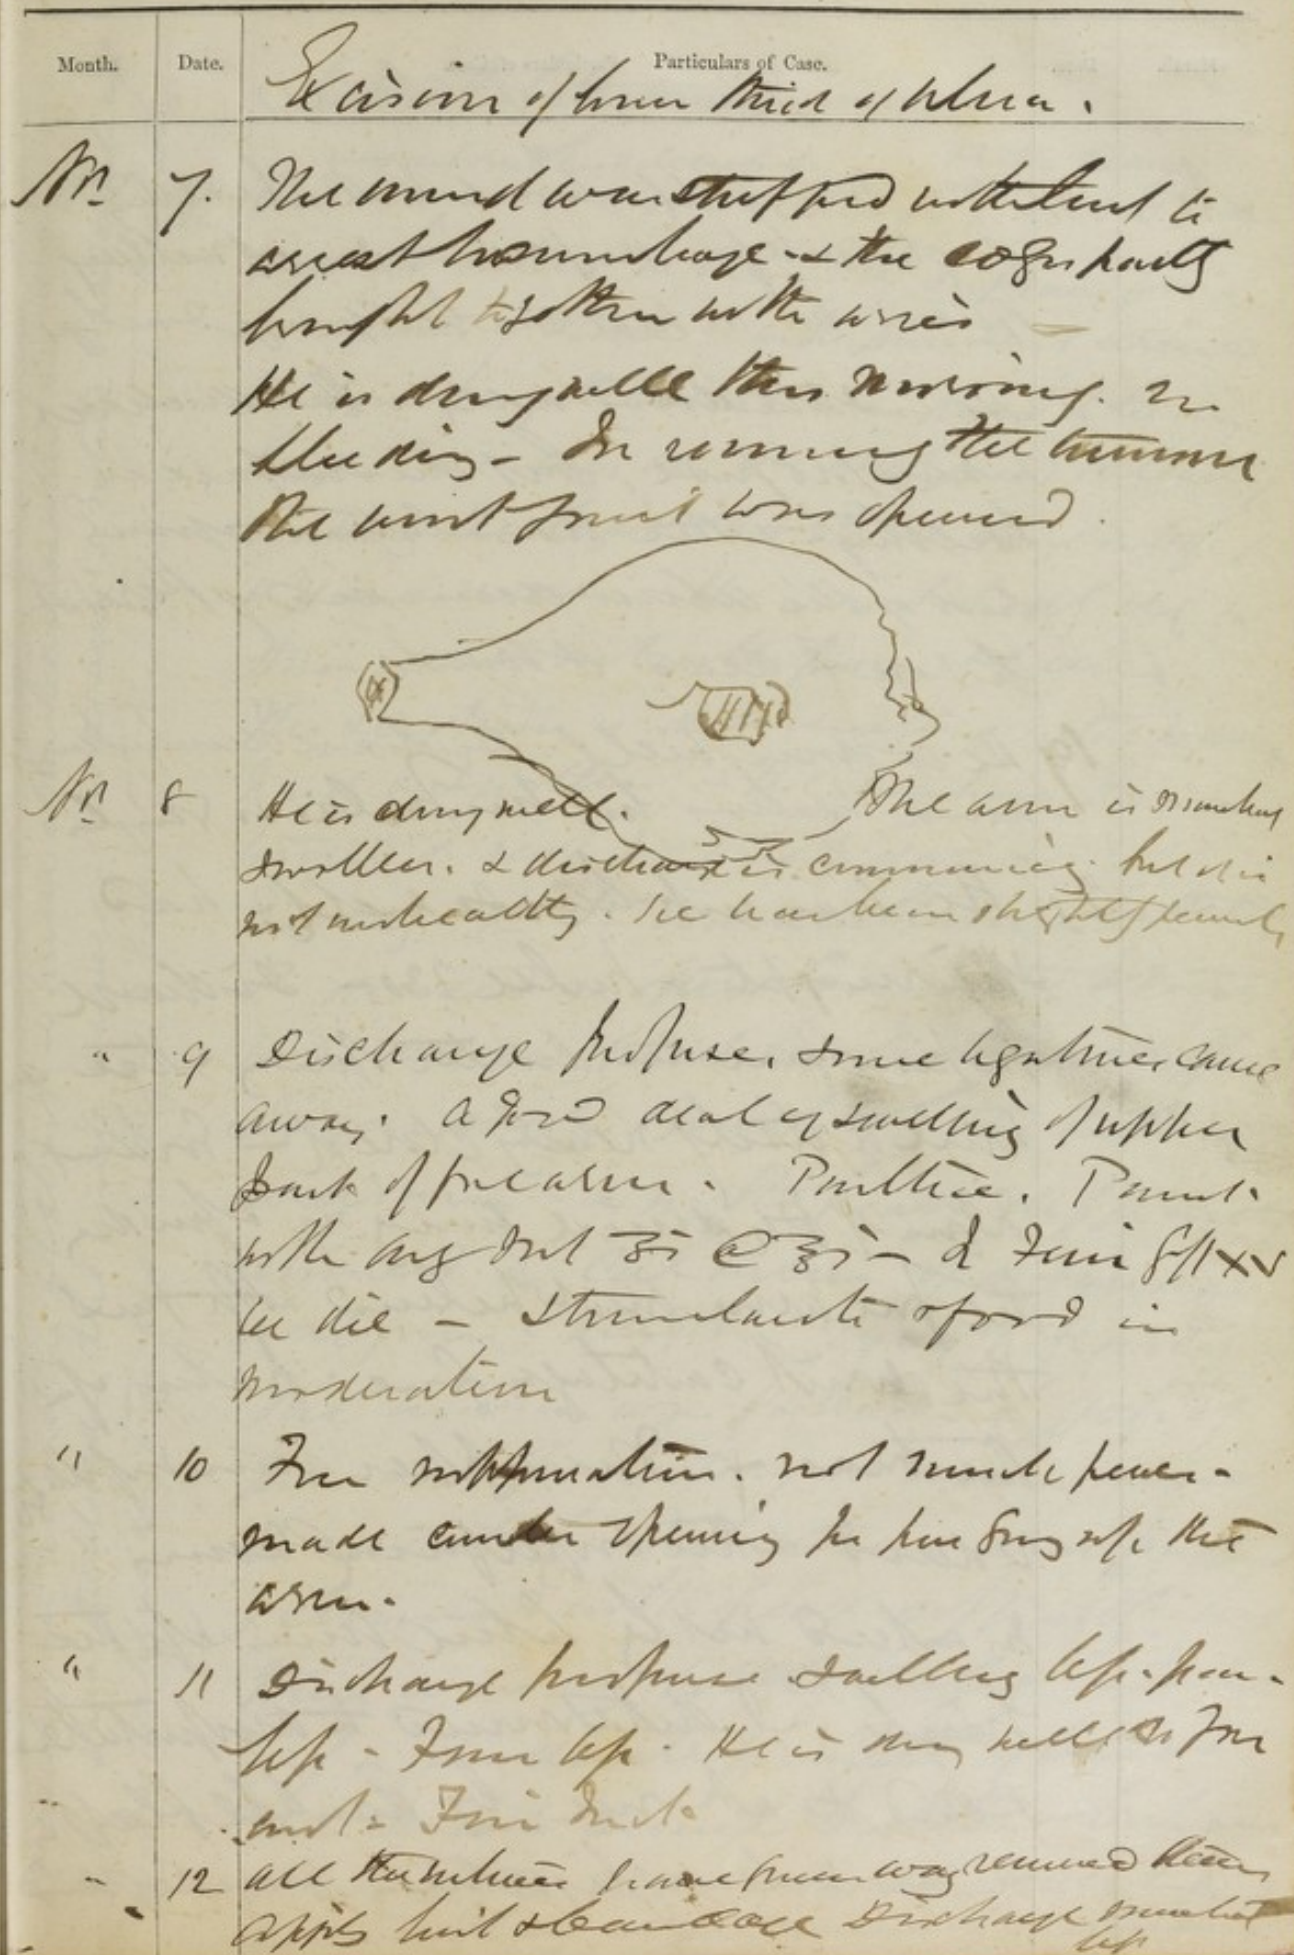 Month. Date. Particulars of Case.
Excision of lower third of Ulna.
Nr. 7. The wound was stuffed with lint to
arrest hæmorrhage & the edges partly
brought together with wires
He is doing well this morning. no
bleeding - In removing the tumour
the wrist joint was opened.
Nr. 8 He is doing well. The arm is somewhat
swollen. & discharge is commencing but it is
not unhealthy. He has been slightly
" 9 Discharge profuse. some ligatures came
away. A good deal of swelling of upper
part of forearm. Poultice. Paint
with arg Nit ʒi @ ℥i -
ter die - Stimulants & food in
moderation
" 10 Free suppuration. not much fever -
made another opening up the
arm.
" 11 Discharge profuse swelling less. pain
less - Fever less. He is doing well so far
12 All the sutures
apply lint & bandage Discharge somewhat
less